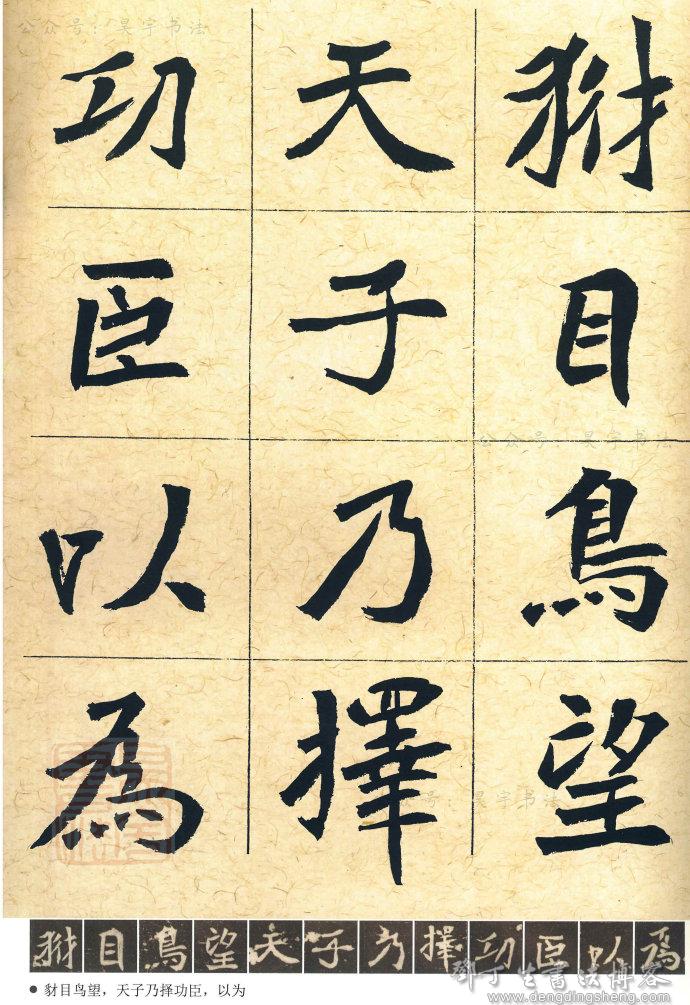 公众号：昊宇书法
豺目鳥望
天子乃擇
功臣以為
公众号：昊宇书法
号：昊宇书法
豺目鳥望天子乃擇功臣以為
● 豺目鸟望，天子乃择功臣，以为
邓丁生书法博客
www.dengdingsheng.com